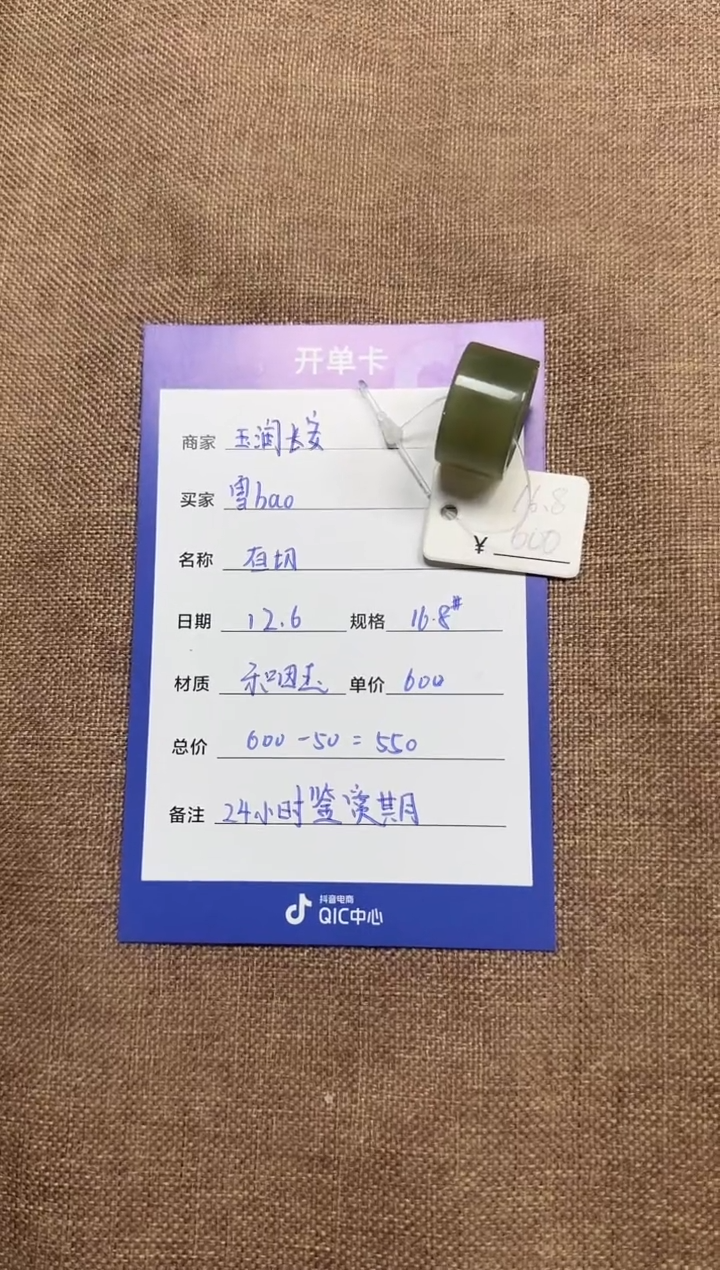 开单卡
商家 玉润长安
买家 雪bao
名称
日期 12.6 规格 16.8#
材质 和田玉 单价 600
总价 600-50=550
备注 24小时鉴赏期
16.8
¥ 600
抖音电商
QIC中心